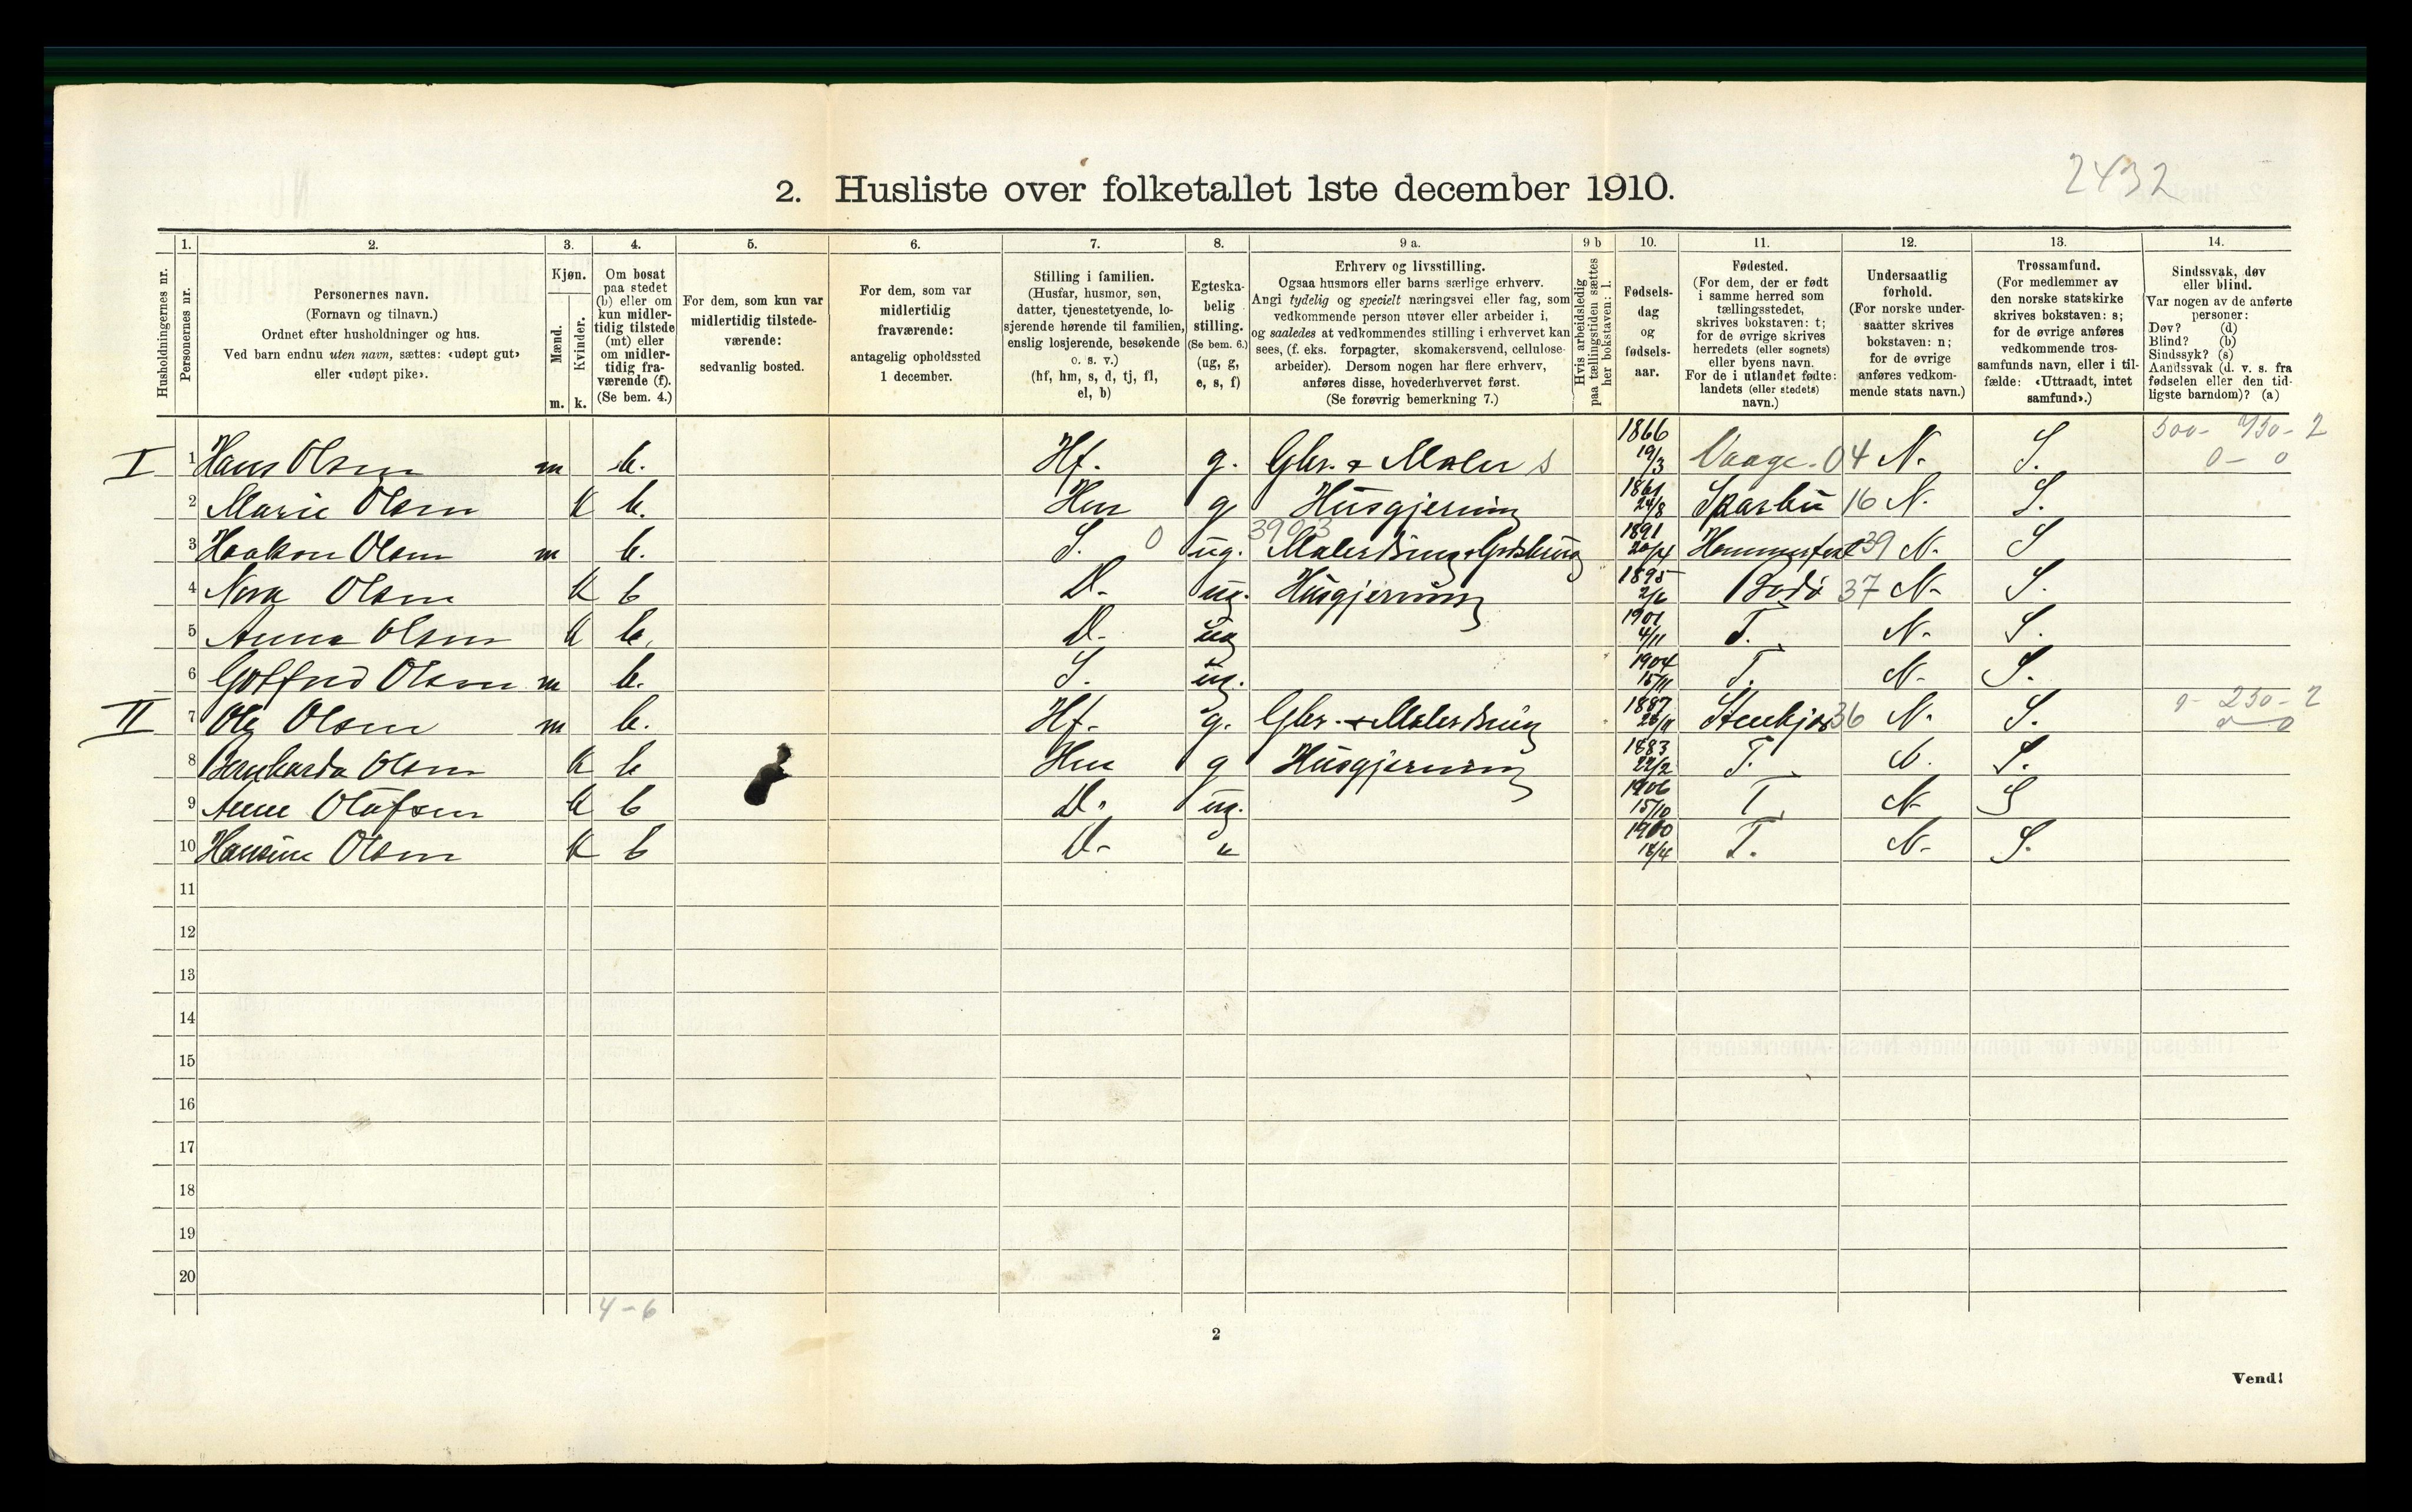 2432
2. Husliste over folketallet 1ste december 1910.
1. 2. 3. 4. 5. 6. 7. 8. 9 a. 9 b 10. 11. 12. 13. 14.
Husholdningernes nr.
Personernes nr.
Personernes navn.
(Fornavn og tilnavn.)
Ordnet efter husholdninger og hus.
Ved barn endnu uten navn, sættes: «udøpt gut»
eller «udøpt pike».
Kjøn.
Mænd.
Kvinder.
m. k.
Om bosat
paa stedet
(b) eller om
kun midler-
tidig tilstede
(mt) eller
om midler-
tidig fra-
værende (f).
(Se bem. 4.)
For dem, som kun var
midlertidig tilstede-
værende:
sedvanlig bosted.
For dem, som var
midlertidig
fraværende:
antagelig opholdssted
1 december.
Stilling i familien.
(Husfar, husmor, søn,
datter, tjenestetyende, lo-
sjerende hørende til familien,
enslig losjerende, besøkende
o. s. v.)
(hf, hm, s, d, tj, fl,
el, b)
Egteska-
belig
stilling.
(Se bem. 6.)
(ug, g,
e, s, f)
Erhverv og livsstilling.
Ogsaa husmors eller barns særlige erhverv.
Angi tydelig og specielt næringsvei eller fag, som
vedkommende person utøver eller arbeider i,
og saaledes at vedkommendes stilling i erhvervet kan
sees, (f. eks. forpagter, skomakersvend, cellulose-
arbeider). Dersom nogen har flere erhverv,
anføres disse, hovederhvervet først.
(Se forøvrig bemerkning 7.)
Hvis arbeidsledig
paa tællingstiden sættes
her bokstaven: l.
Fødsels-
dag
og
fødsels-
aar.
Fødested.
(For dem, der er født
i samme herred som
tællingsstedet,
skrives bokstaven: t;
for de øvrige skrives
herredets (eller sognets)
eller byens navn.
For de i utlandet fødte:
landets (eller stedets)
navn.)
Undersaatlig
forhold.
(For norske under-
saatter skrives
bokstaven: n;
for de øvrige
anføres vedkom-
mende stats navn.)
Trossamfund.
(For medlemmer av
den norske statskirke
skrives bokstaven: s;
for de øvrige anføres
vedkommende tros-
samfunds navn, eller i til-
fælde: «Uttraadt, intet
samfund».)
Sindssvak, døv
eller blind.
Var nogen av de anførte
personer:
Døv? (d)
Blind? (b)
Sindssyk? (s)
Aandssvak (d. v. s. fra
fødselen eller den tid-
ligste barndom)? (a)
I 1 Hans Olsen m b. Hf. g. Gbr. + Maler s 1866 19/3 Vaage. 04 N. S. 500- 930- 2
0- 0
2 Marie Olsen K b. Hm g Husgjerning 1861 24/8 Sparbu 16 N. S.
3 Haakon Olsen m b. S. 0 ug. 3903 1891 20/4 Hammerfest 39 N. S
4 Nora Olsen K b D. ug. Husgjerning 1895 2/6 Bodø 37 N. S.
5 Anna Olsen K b. D. ug 1901 4/11 T. N. S.
6 Gotfred Olsen m b. S. ug. 1904 15/11 T. N. S.
II 7 Ole Olsen m b. Hf. g. Gbr. + Malerdreng 1887 26/11 Stenkjær 36 N. S. 0- 230- 2
0 0
8 Bernharda Olsen K b Hm g Husgjerning 1883 22/2 T. N. S.
9 Anne Olufsen K b D. ug. 1906 15/10 T. N. S
10 Hansine Olsen K b D. " 1910 18/4 T. N. S.
11
12
13
14
15
16
17
18
19
20
4-6
2
Vend!